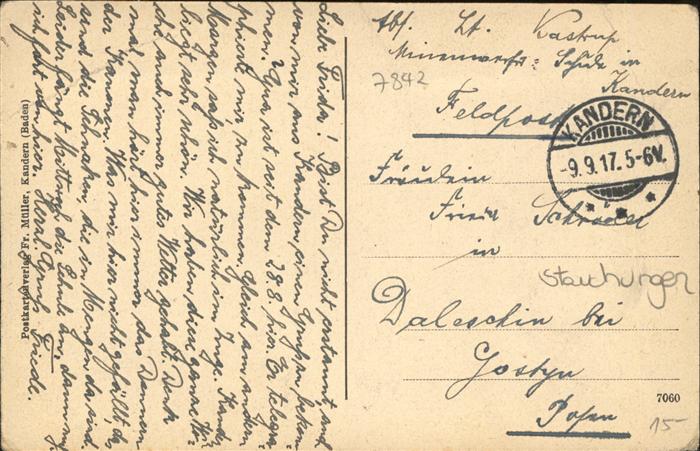 Abs. Lt. Kastrup
Minenwerfer-Schule in
Kandern
7842
Feldpost
KANDERN
-9.9.17.5-6V.
Fräulein
Frieda Schroeder
in
Stauchungen
Daleschin bei
Gostyn
Posen
7060
15-
Liebe Frieda! Bist Du nicht erstaunt, auch
von mir aus Kandern einen Gruß zu bekom
men? ist seit dem 28.8. hier. Er telegra
phierte mir zu kommen. Gleich am andern
Morgen saß ich natürlich im Zuge. Kandern
liegt sehr schön. Wir haben diese ganze Wo
che auch immer gutes Wetter gehabt. Denk
mal, man hört hier immer das Donnern
der Kanonen. Was mir hier nicht gefällt, das
sind die Schnaken, die in Mengen da sind.
Leider fängt Mittwoch die Schule an, dann muß
ich fort von hier. Herzl. Gruß Friedel.
Postkartenverlag Fr. Müller, Kandern (Baden)